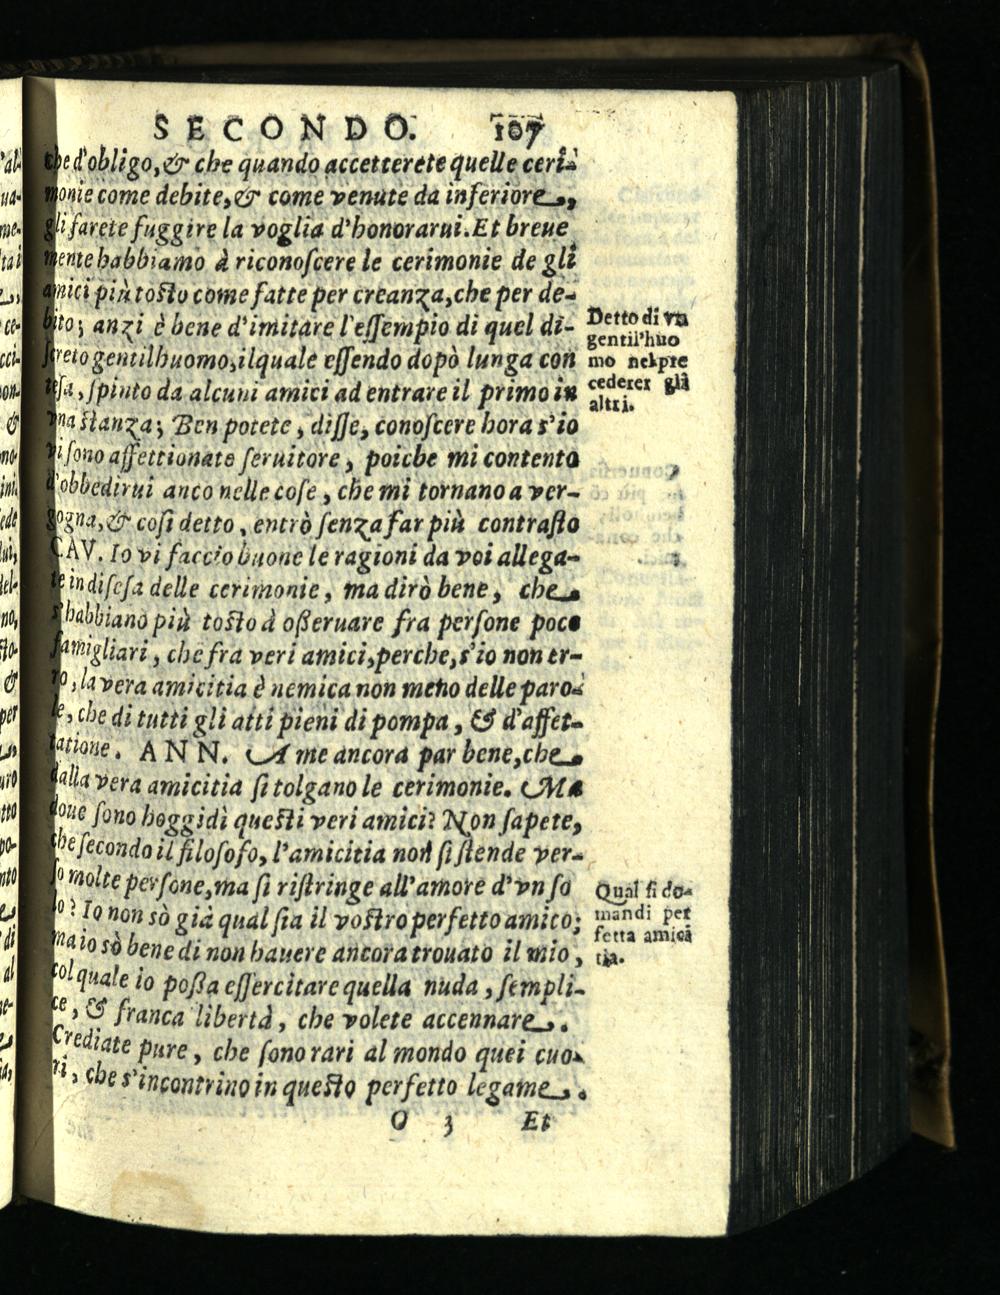 SECONDO. 107
che d'obligo, & che quando accetterete quelle ceri-
monie come debite, & come venute da inferiore,
gli farete fuggire la voglia d'honorarui. Et breue
mente habbiamo à riconoſcere le cerimonie de gli
amici più toſto come fatte per creanza, che per de-
bito; anzi è bene d'imitare l'eſſempio di quel di-
ſcreto gentilhuomo, ilquale eſſendo dopò lunga con
teſa, ſpinto da alcuni amici ad entrare il primo in
vna ſtanza; Ben potete, diſſe, conoſcere hora s'io
vi ſono affettionato ſeruitore, poiche mi contento
d'obbedirui anco nelle coſe, che mi tornano a ver-
gogna, & coſi detto, entrò ſenza far più contraſto
CAV. Io vi faccio buone le ragioni da voi allega-
te in difeſa delle cerimonie, ma dirò bene, che
s'habbiano più toſto à oßeruare fra perſone poco
famigliari, che fra veri amici, perche, s'io non er-
ro, la vera amicitia è nemica non meno delle paro-
le, che di tutti gli atti pieni di pompa, & d'affet-
tatione. ANN. A me ancora par bene, che
dalla vera amicitia ſi tolgano le cerimonie. Ma
doue ſono hoggidì queſti veri amici? Non ſapete,
che ſecondo il filoſofo, l'amicitia non ſi ſtende ver-
ſo molte perſone, ma ſi riſtringe all'amore d'vn ſo
lo? Io non sò già qual ſia il voſtro perfetto amico;
ma io sò bene di non hauere ancora trouato il mio,
col quale io poßa eſſercitare quella nuda, ſempli-
ce, & franca libertà, che volete accennare.
Crediate pure, che ſono rari al mondo quei cuo-
ri, che s'incontrino in queſto perfetto legame.
O 3 Et
Detto di vn
gentil'huo
mo nel pre
cederer già
altri.
Qual ſi do-
mandi per
fetta amici
tia.